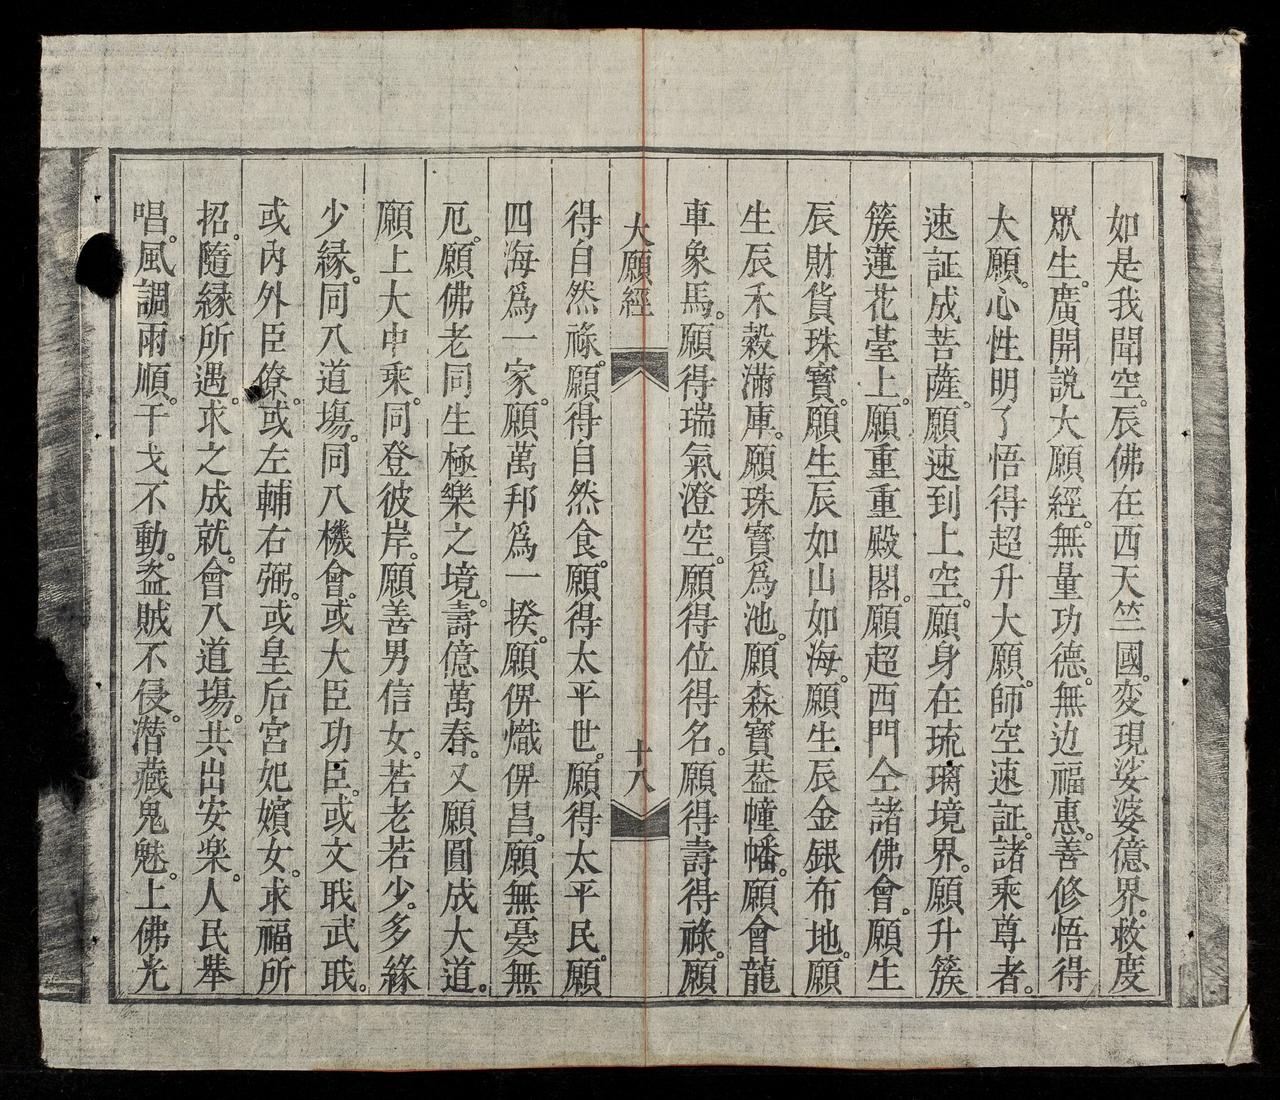 如是我聞空。辰佛在西天竺國。変現娑婆億界。救度
眾生。廣開説大願經。無量功德。無边福惠。善修悟得
大願。心性明了悟得超升大願。師空速証。諸乘尊者。
速証成菩薩。願速到上空。願身在琉璃境界。願升簇
簇蓮花臺上。願重重殿閣。願超西門仝諸佛會。願生
辰財貨珠寶。願生辰如山如海。願生辰金銀布地。願
生辰禾穀滿庫。願珠寶爲池。願森寶葢幢幡。願會龍
車象馬。願得瑞氣澄空。願得位得名。願得壽得祿。願
大願經 十八
得自然祿。願得自然食。願得太平世。願得太平民。願
四海爲一家。願萬邦爲一揆。願俾熾俾昌。願無憂無
厄。願佛老同生極樂之境。壽億萬春。又願圓成大道。
願上大中乘。同登彼岸。願善男信女。若老若少。多緣
少緣。同入道塲。同入機會。或大臣功臣。或文戝武戝。
或內外臣僚。或左輔右弼。或皇后宮妃嬪女。求福所
招。隨緣所遇。求之成就。會入道塲。共出安楽。人民舉
唱。風調雨順。干戈不動。盗賊不侵。潛藏鬼魅。上佛光